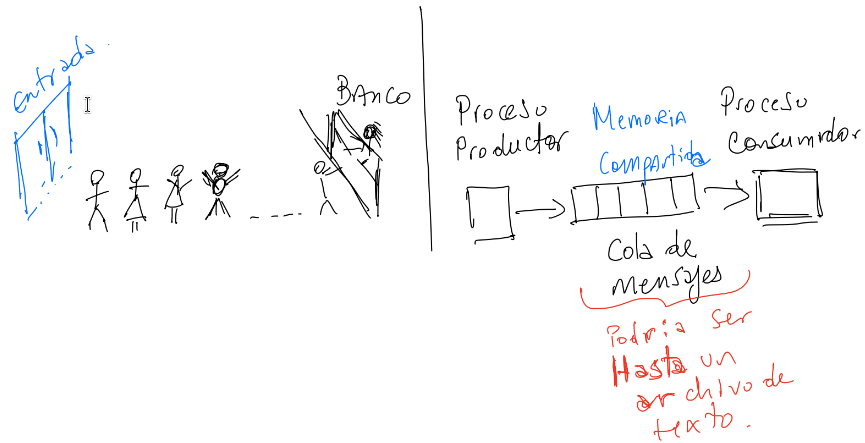 entrada.
BANCO
Proceso
Productor
MEMORIA
Compartida
Proceso
Consumidor
Cola de
mensajes
Podria ser
Hasta un
archivo de
texto.